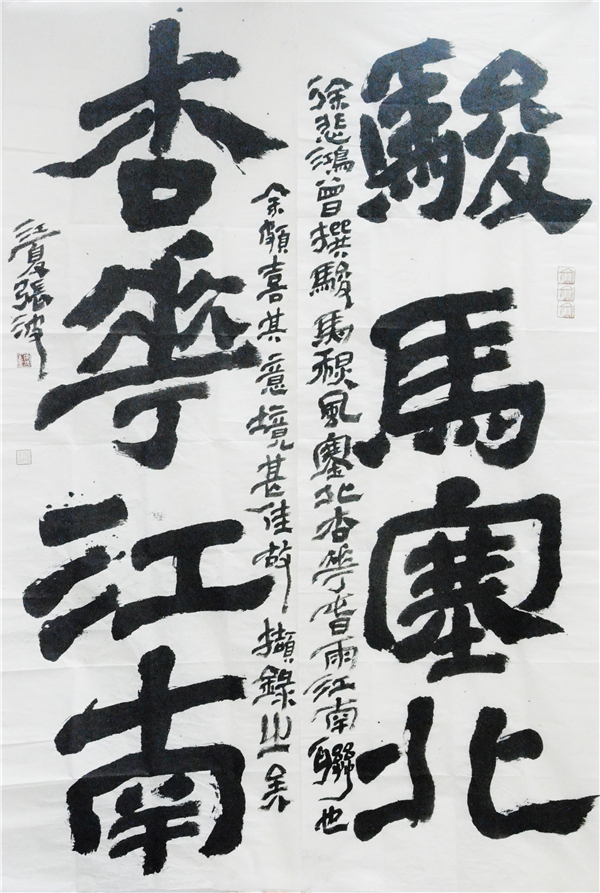 駿馬塞北
徐悲鴻曾撰駿馬穐風塞北杏華春雨江南聯也
余頗喜其意境甚佳故擷錄之
杏華江南
江夏張波